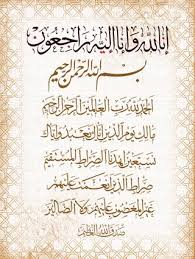 انا لله وانا اليه راجعون
بسم الله الرحمن الرحيم
الحمد لله رب العالمين الرحمن الرحيم
مالك يوم الدين اياك نعبد واياك
نستعين اهدنا الصراط المستقيم
صراط الذين انعمت عليهم
غير المغضوب عليهم ولا الضالين
صدق الله العظيم